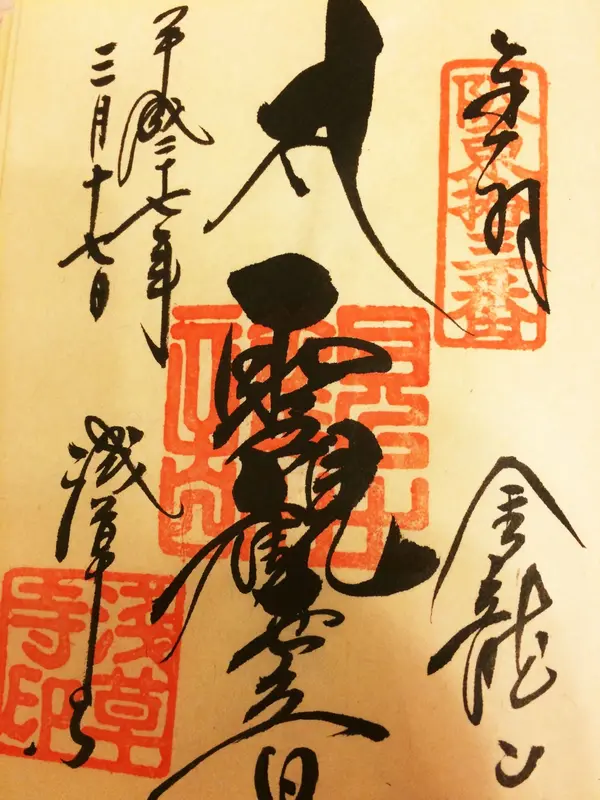 奉拝
阪東拾三番
金龍山
大聖観世音
平成二十七年
三月十七日
浅草寺
浅草
寺印